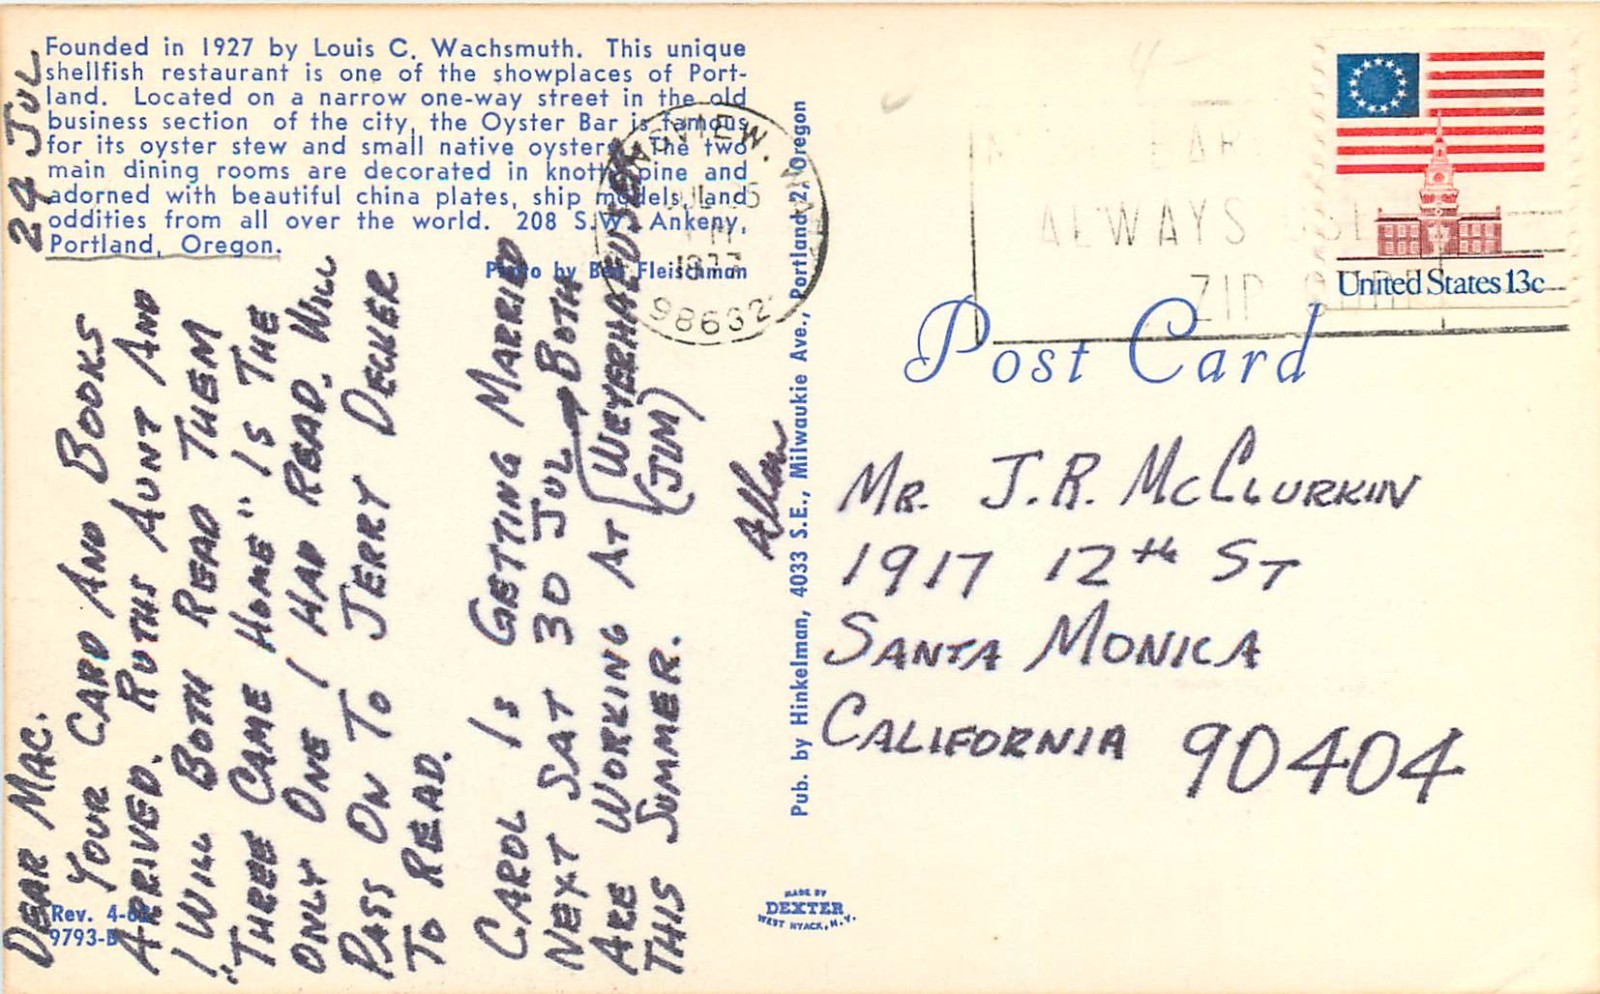 Founded in 1927 by Louis C. Wachsmuth. This unique
shellfish restaurant is one of the showplaces of Port-
land. Located on a narrow one-way street in the old
business section of the city, the Oyster Bar is famous
for its oyster stew and small native oysters. The two
main dining rooms are decorated in knotty pine and
adorned with beautiful china plates, ship models, and
oddities from all over the world. 208 S.W. Ankeny,
Portland, Oregon.
Photo by Ben Fleischman
24 JUL
DEAR MAC.
YOUR CARD AND BOOKS
ARRIVED. RUTHS AUNT AND
I WILL BOTH READ THEM
"THREE CAME HOME" IS THE
ONLY ONE I HAD READ. WILL
PASS ON TO JERRY DECKER
TO READ.
CAROL IS GETTING MARRIED
NEXT SAT 30 JUL → BOTH
ARE WORKING AT (WEYERHAEUSER
THIS SUMMER. (JIM)
Allen
Rev. 4-
9793-B
Pub. by Hinkelman, 4033 S.E., Milwaukie Ave., Portland 2, Oregon
MADE BY
DEXTER
WEST NYACK, N.Y.
LONGVIEW, WASH
JUL 25
PM
1977
98632
ALWAYS USE
ZIP CODE
United States 13c
Post Card
MR. J.R. MCCLURKIN
1917 12th ST
SANTA MONICA
CALIFORNIA 90404